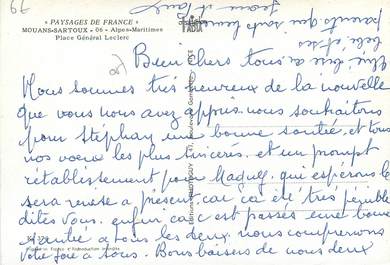 « PAYSAGES DE FRANCE »
MOUANS-SARTOUX - 06 - Alpes-Maritimes
Place Général Leclerc
Bien chers tous
Nous sommes très heureux de la nouvelle
que vous nous avez appris. nous souhaitons
pour Stephan une bonne santée. et tous
nos voeux les plus sincères. et un prompt
rétablissement pour qui espérons le
sera remise a present. car ça été très penible
dites vous. enfin car c'est passés. une bonne
santié a tous les deux. nous comprenons
votre joie a tous. Bons baisers de nous deux